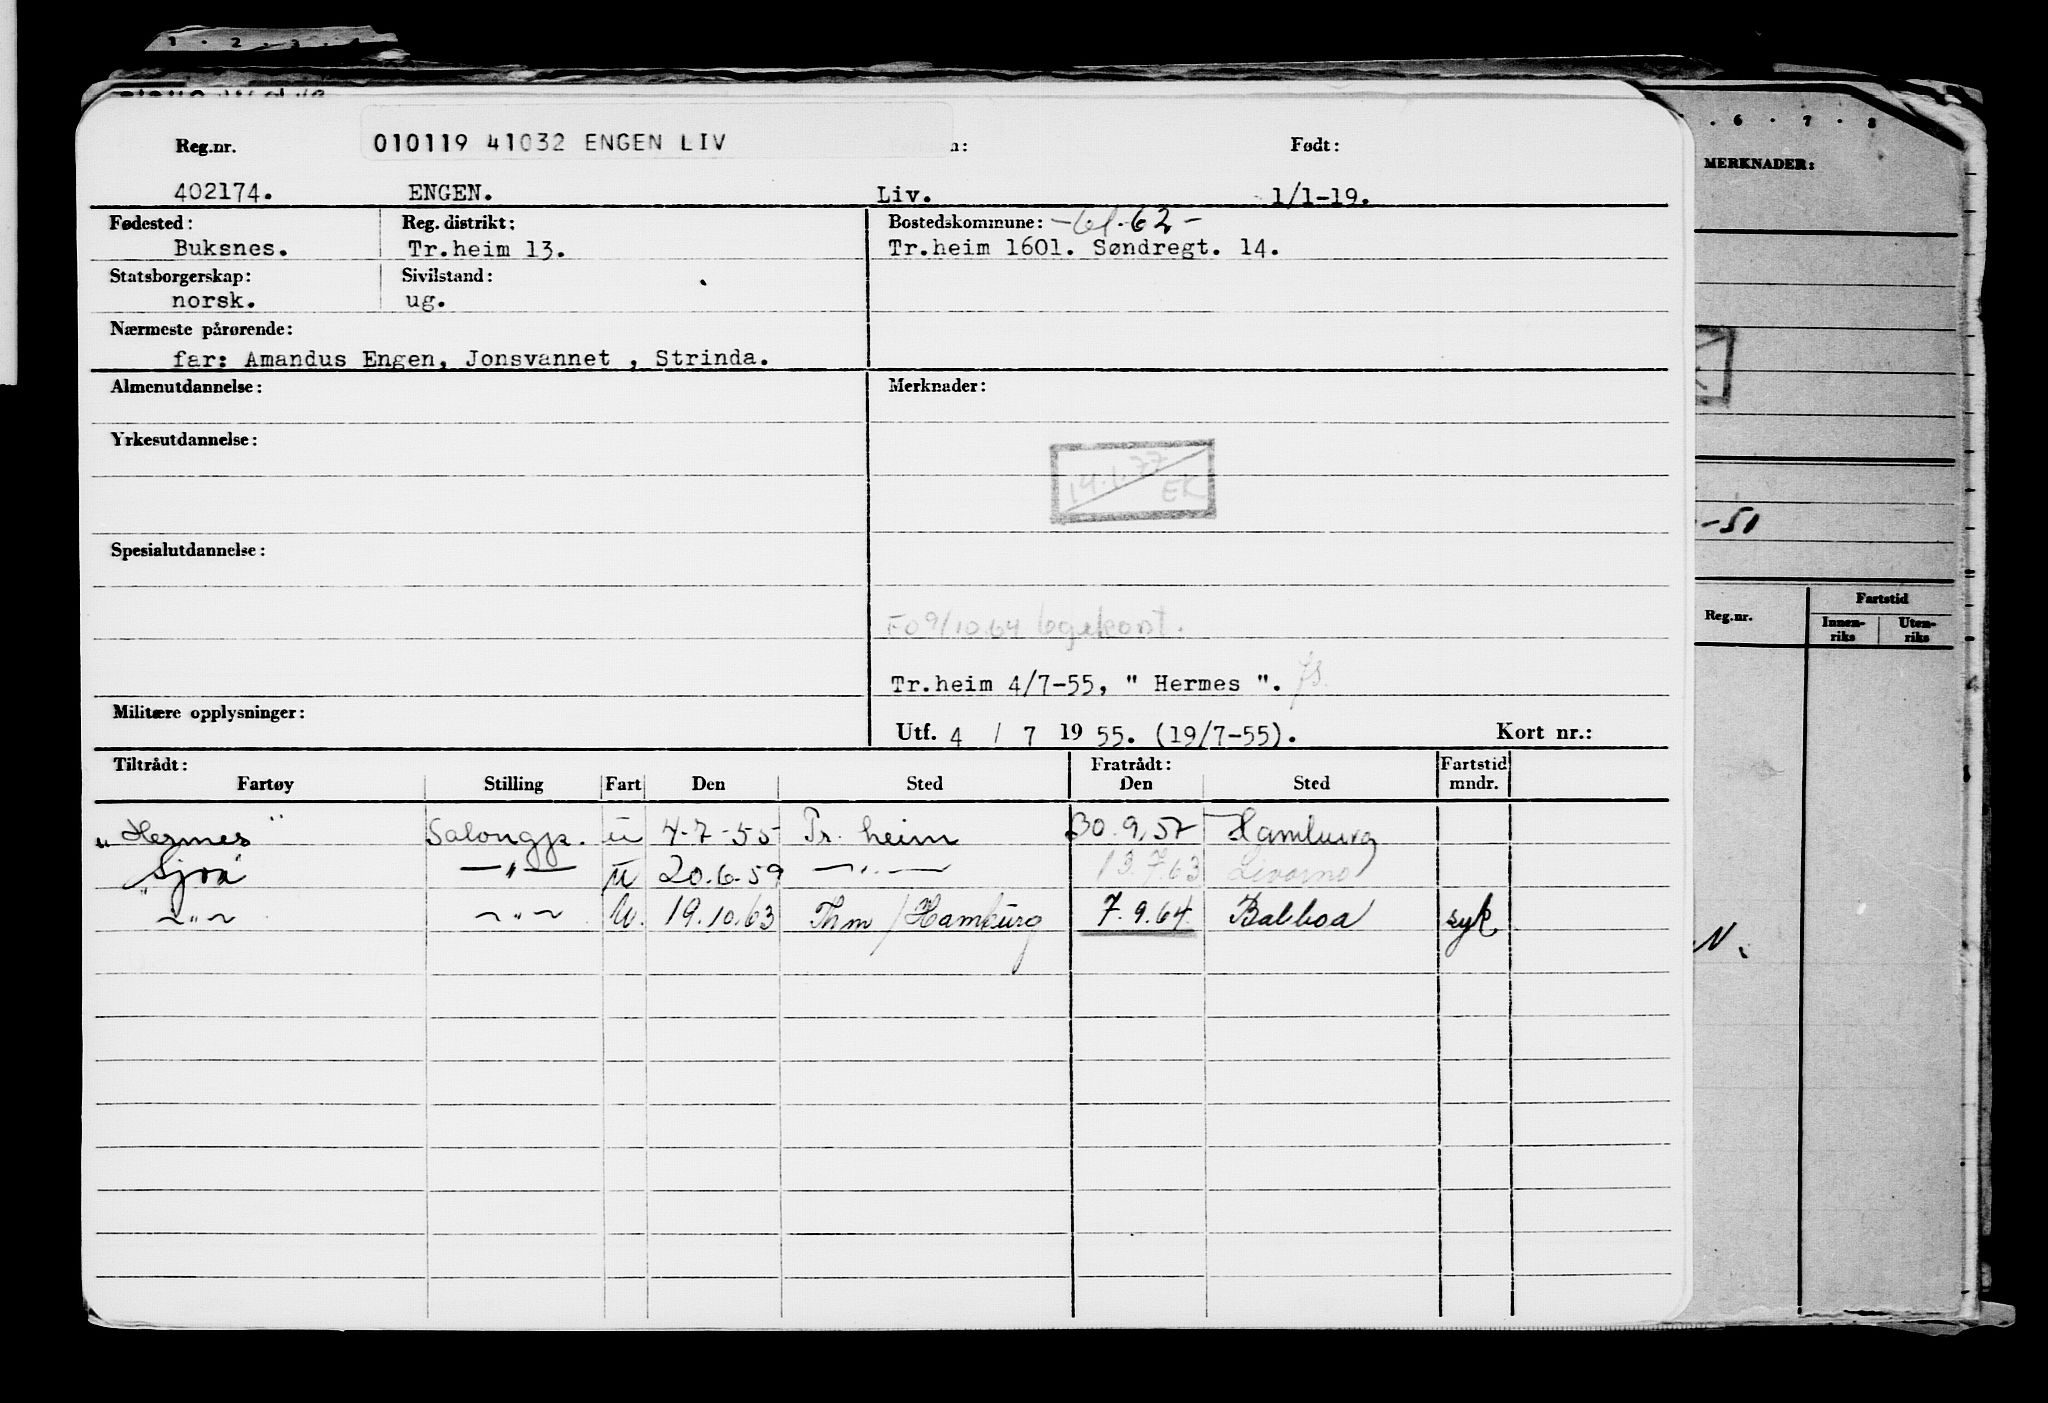 1 . 2 . 3 . 4
010119 41032 ENGEN LIV
Reg.nr. n: Født:
402174. ENGEN. Liv. 1/1-19.
Fødested: Reg. distrikt: Bostedskommune: -61-62-
Buksnes. Tr.heim 13. Tr.heim 1601. Søndregt. 14.
Statsborgerskap: Sivilstand:
norsk. ug.
Nærmeste pårørende:
far: Amandus Engen, Jonsvannet , Strinda.
Almenutdannelse: Merknader:
Yrkesutdannelse:
14.1.77
EK
Spesialutdannelse:
FO 9/10.64
Tr.heim 4/7-55, " Hermes ".
Militære opplysninger:
Utf. 4 / 7 19 55. (19/7-55). Kort nr.:
Tiltrådt: Fratrådt: Fartstid
Fartøy Stilling Fart Den Sted Den Sted mndr.
"Hermes" Salongp. u 4-7-55 Tr. heim 30.9.57 Hamburg
"Sjoa" —"— u 20.6.59 —"— 13.7.63 Livorno
—"— —"— U. 19.10.63 Thm / Hamburg 7.9.64 Balboa syk
. 6 . 7 . 8
MERKNADER:
-51
Reg.nr. Fartstid
Innen-
riks Uten-
riks
N.